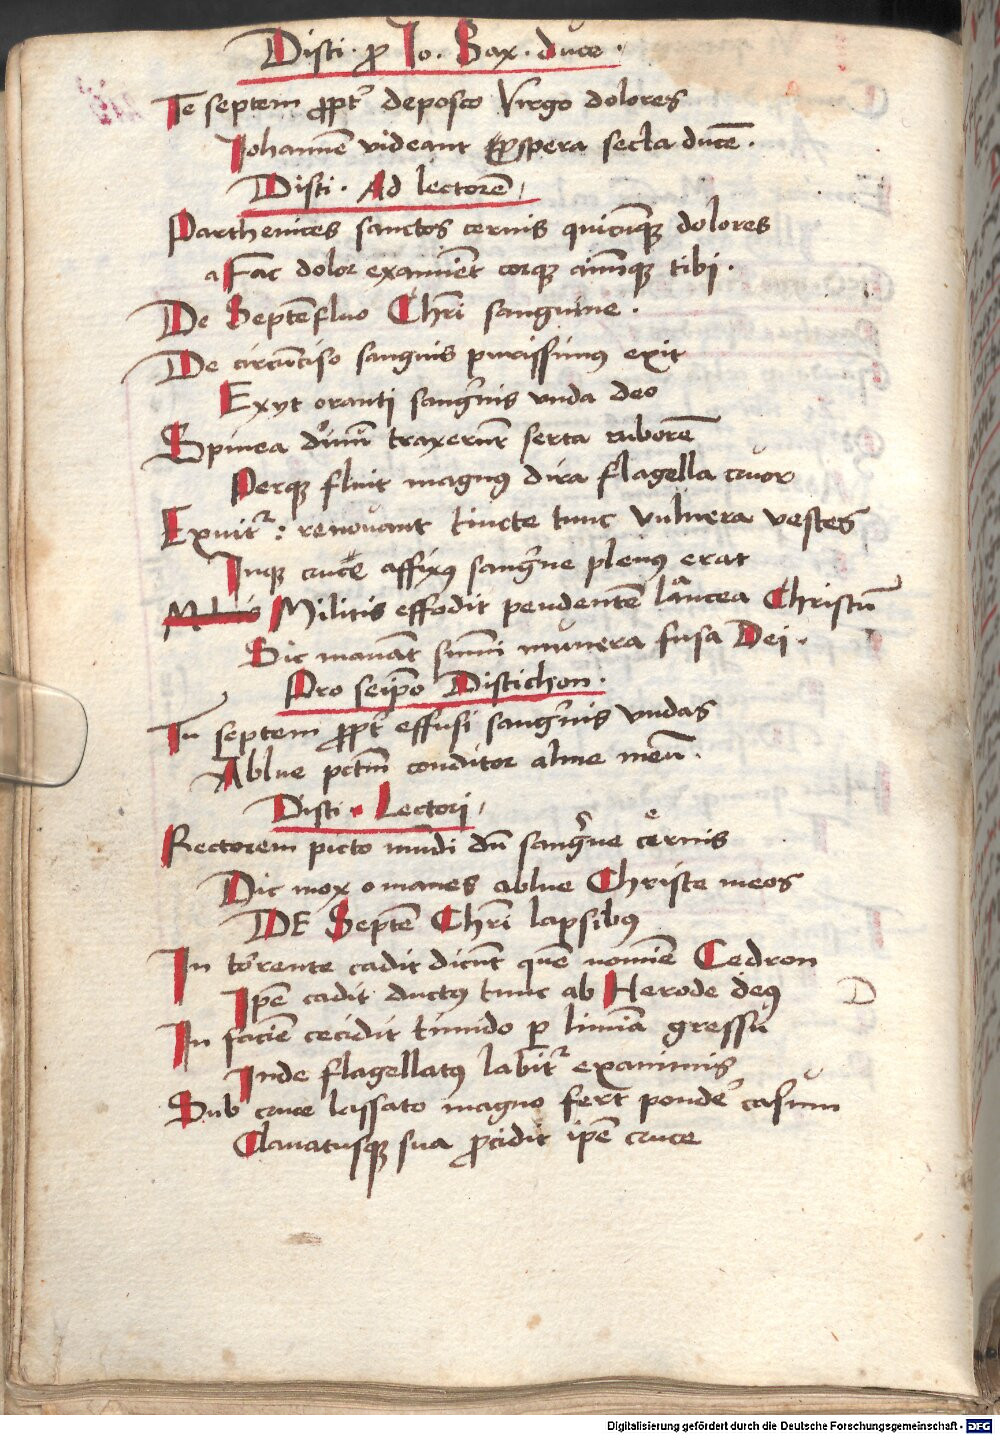 Disti · ꝓ Io. Sax. duce ·
Te septem ꝓpt' deposco Virgo dolores
Iohannē videant ꝓspera secla ducē .
Disti · Ad lectorē
Parthenices sanctos cernis quicūqꝫ dolores
a Fac dolor exanimēt corqꝫ aīmqꝫ tibi .
De Septēfluo Chri̅ sanguine .
De circūciso sanguis purissimꝰ exit
Exyt oranti sang'nis vnda deo
Spinea diuinū traxerunt serta ruborē
Perqꝫ fluit magnꝰ dira flagella cruor
Exuit᷑ : renouant tincte tunc vulnera vestes
Inqꝫ cruce affixꝰ sang'ne plenꝰ erat
Militis effodit pendentē lancea Christū
Sic manāt sum̄i munera fusa Dei .
Pro seip̄o Distichon .
Tu septem ꝓpt' effusi sang'nis vndas
Ablue pctm̄ conditor alme meū .
Disti · Lectori
Rectorem picto mūdi dū sang'ne cernis
Dic mox o manes ablue Christe meos
DE Septē Chri̅ lapsibꝰ
In torrente cadit dicūt quē nomīe Cedron
Ip̄e cadit ductꝰ tunc ab Herode deꝰ
In faciē cecidit timido ꝑ limīa gressu
Inde flagellatꝰ labit᷑ exanimis
Sub cruce lassato magno fert ponde' casum
Clauatusqꝫ sua ꝓcidit ip̄e cruce
D
Digitalisierung gefördert durch die Deutsche Forschungsgemeinschaft - DFG